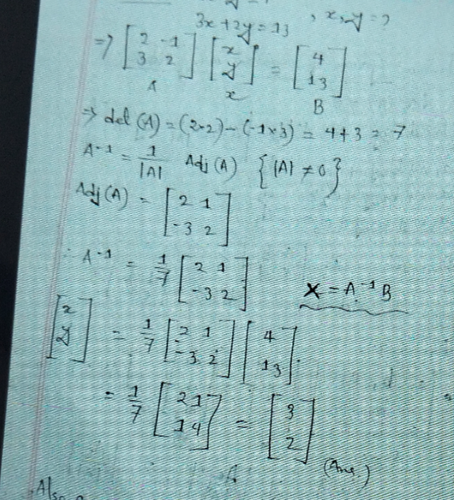 3x+2y=13 , x,y=?
⇒ [2 -1; 3 2] [x; y] = [4; 13]
A x B
⇒ del (A) = (2×2) - (-1×3) = 4+3 = 7
A⁻¹ = 1/|A| Adj (A) {|A| ≠ 0}
Adj (A) = [2 1; -3 2]
∴ A⁻¹ = 1/7 [2 1; -3 2] X = A⁻¹ B
[x; y] = 1/7 [2 1; -3 2] [4; 13]
= 1/7 [21; 14] = [3; 2]
(Ans.)